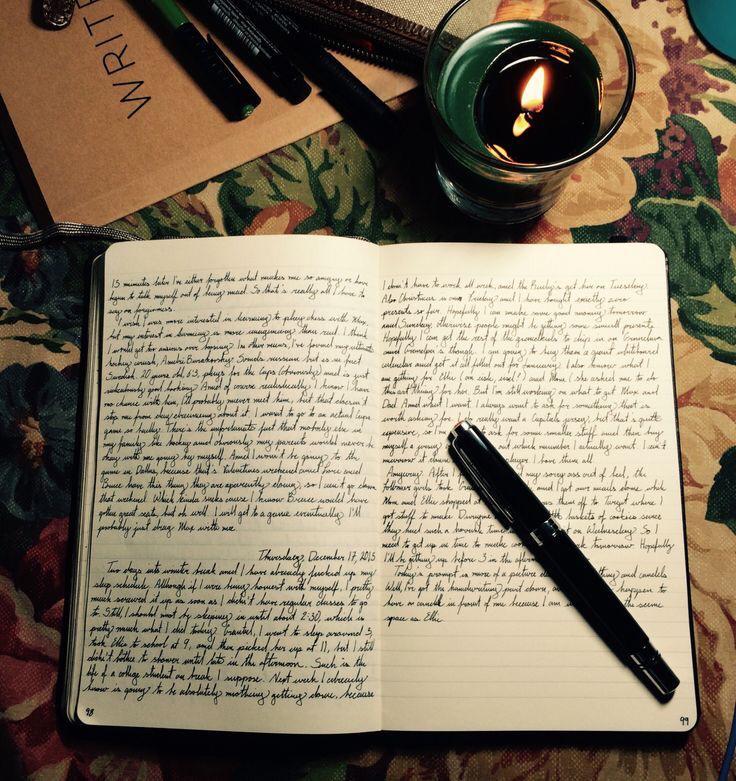 WRITE
15 minutes later I've either forgotten what makes me so angry or have
begun to talk myself out of being mad. So that's really all I have to
say on forgiveness.
I wish I was more interested in learning to play chess with Max,
but my interest in learning is more imaginary than real. I think
I would get too serious over losing. In other news, I've found my ultimate
hockey crush, Andre Burakovsky. Sounds russian but is in fact
Swedish. 20 years old, 6'3, plays for the Caps (obviously) and is just
ridiculously good looking. And of course realistically I know I have
no chance with him, I'd probably never meet him, but that doesn't
stop me from day dreaming about it. I want to go to an actual Caps
game so badly. There's the unfortunate fact that nobody else in
my family like hockey and obviously my parents would never be
okay with me going by myself. And I won't be going to the
game in Dallas, because that's Valentines weekend and
Bruce have this thing they are apparently doing, so I can't go down
that weekend. Which kinda sucks cause I know Bruce would have
gotten great seats, but oh well. I will get to a game eventually. I'll
probably just drag Max with me.
Thursday, December 17, 2015
Two days into winter break and I have already fucked up my
sleep schedule. Although if I were being honest with myself, I pretty
much screwed it up as soon as I didn't have regular classes to go
to. Still, I should not be sleeping in until about 2:30, which is
pretty much what I did today. Granted, I went to sleep around 3,
took Ellie to school at 9, and then picked her up at 11, but I still
didn't bother to shower until late in the afternoon. Such is the
life of a college student on break I suppose. Next week I already
know is going to be absolutely nothing getting done, because
98
I don't have to work all week, and the family's get here on Tuesday.
Also Christmas is on Friday and I have bought exactly zero
presents so far. Hopefully I can make some good money tomorrow
and Sunday otherwise people might be getting some small presents.
Hopefully I can get the rest of the grandkids to chip in on Grandma
and Grandpa's though. I am going to buy them a giant whiteboard
calendar and get it all filled out for January. I also know what I
am getting for Ellie (an icicle, wee!) and Mom (she asked me to do
that art thing) for her. But I'm still working on what to get Max and
Dad. And what I want. I always want to ask for something that is
worth asking for, but I really want a Capitals jersey, but that's quite
expensive, so I'm to ask for some smaller stuff and then buy
myself a jersey out which number I actually want. I ain't
player I love them all.
Anyway. After sorry ass out of bed, the
follower girls took and I got our nails done while
Mom and Ellie shopped at them off to Target where I
got stuff to make batch baskets of cookies since
they had such a horrible time out on Wednesday. So I
need to get up in time to make tomorrow. Hopefully
I'll be getting up before 3 in the afternoon
Today's prompt is more of a picture and candels.
Well, I've got the handwriting part down, happen to
have a candle in front of me because I am the same
space as Ellie.
99